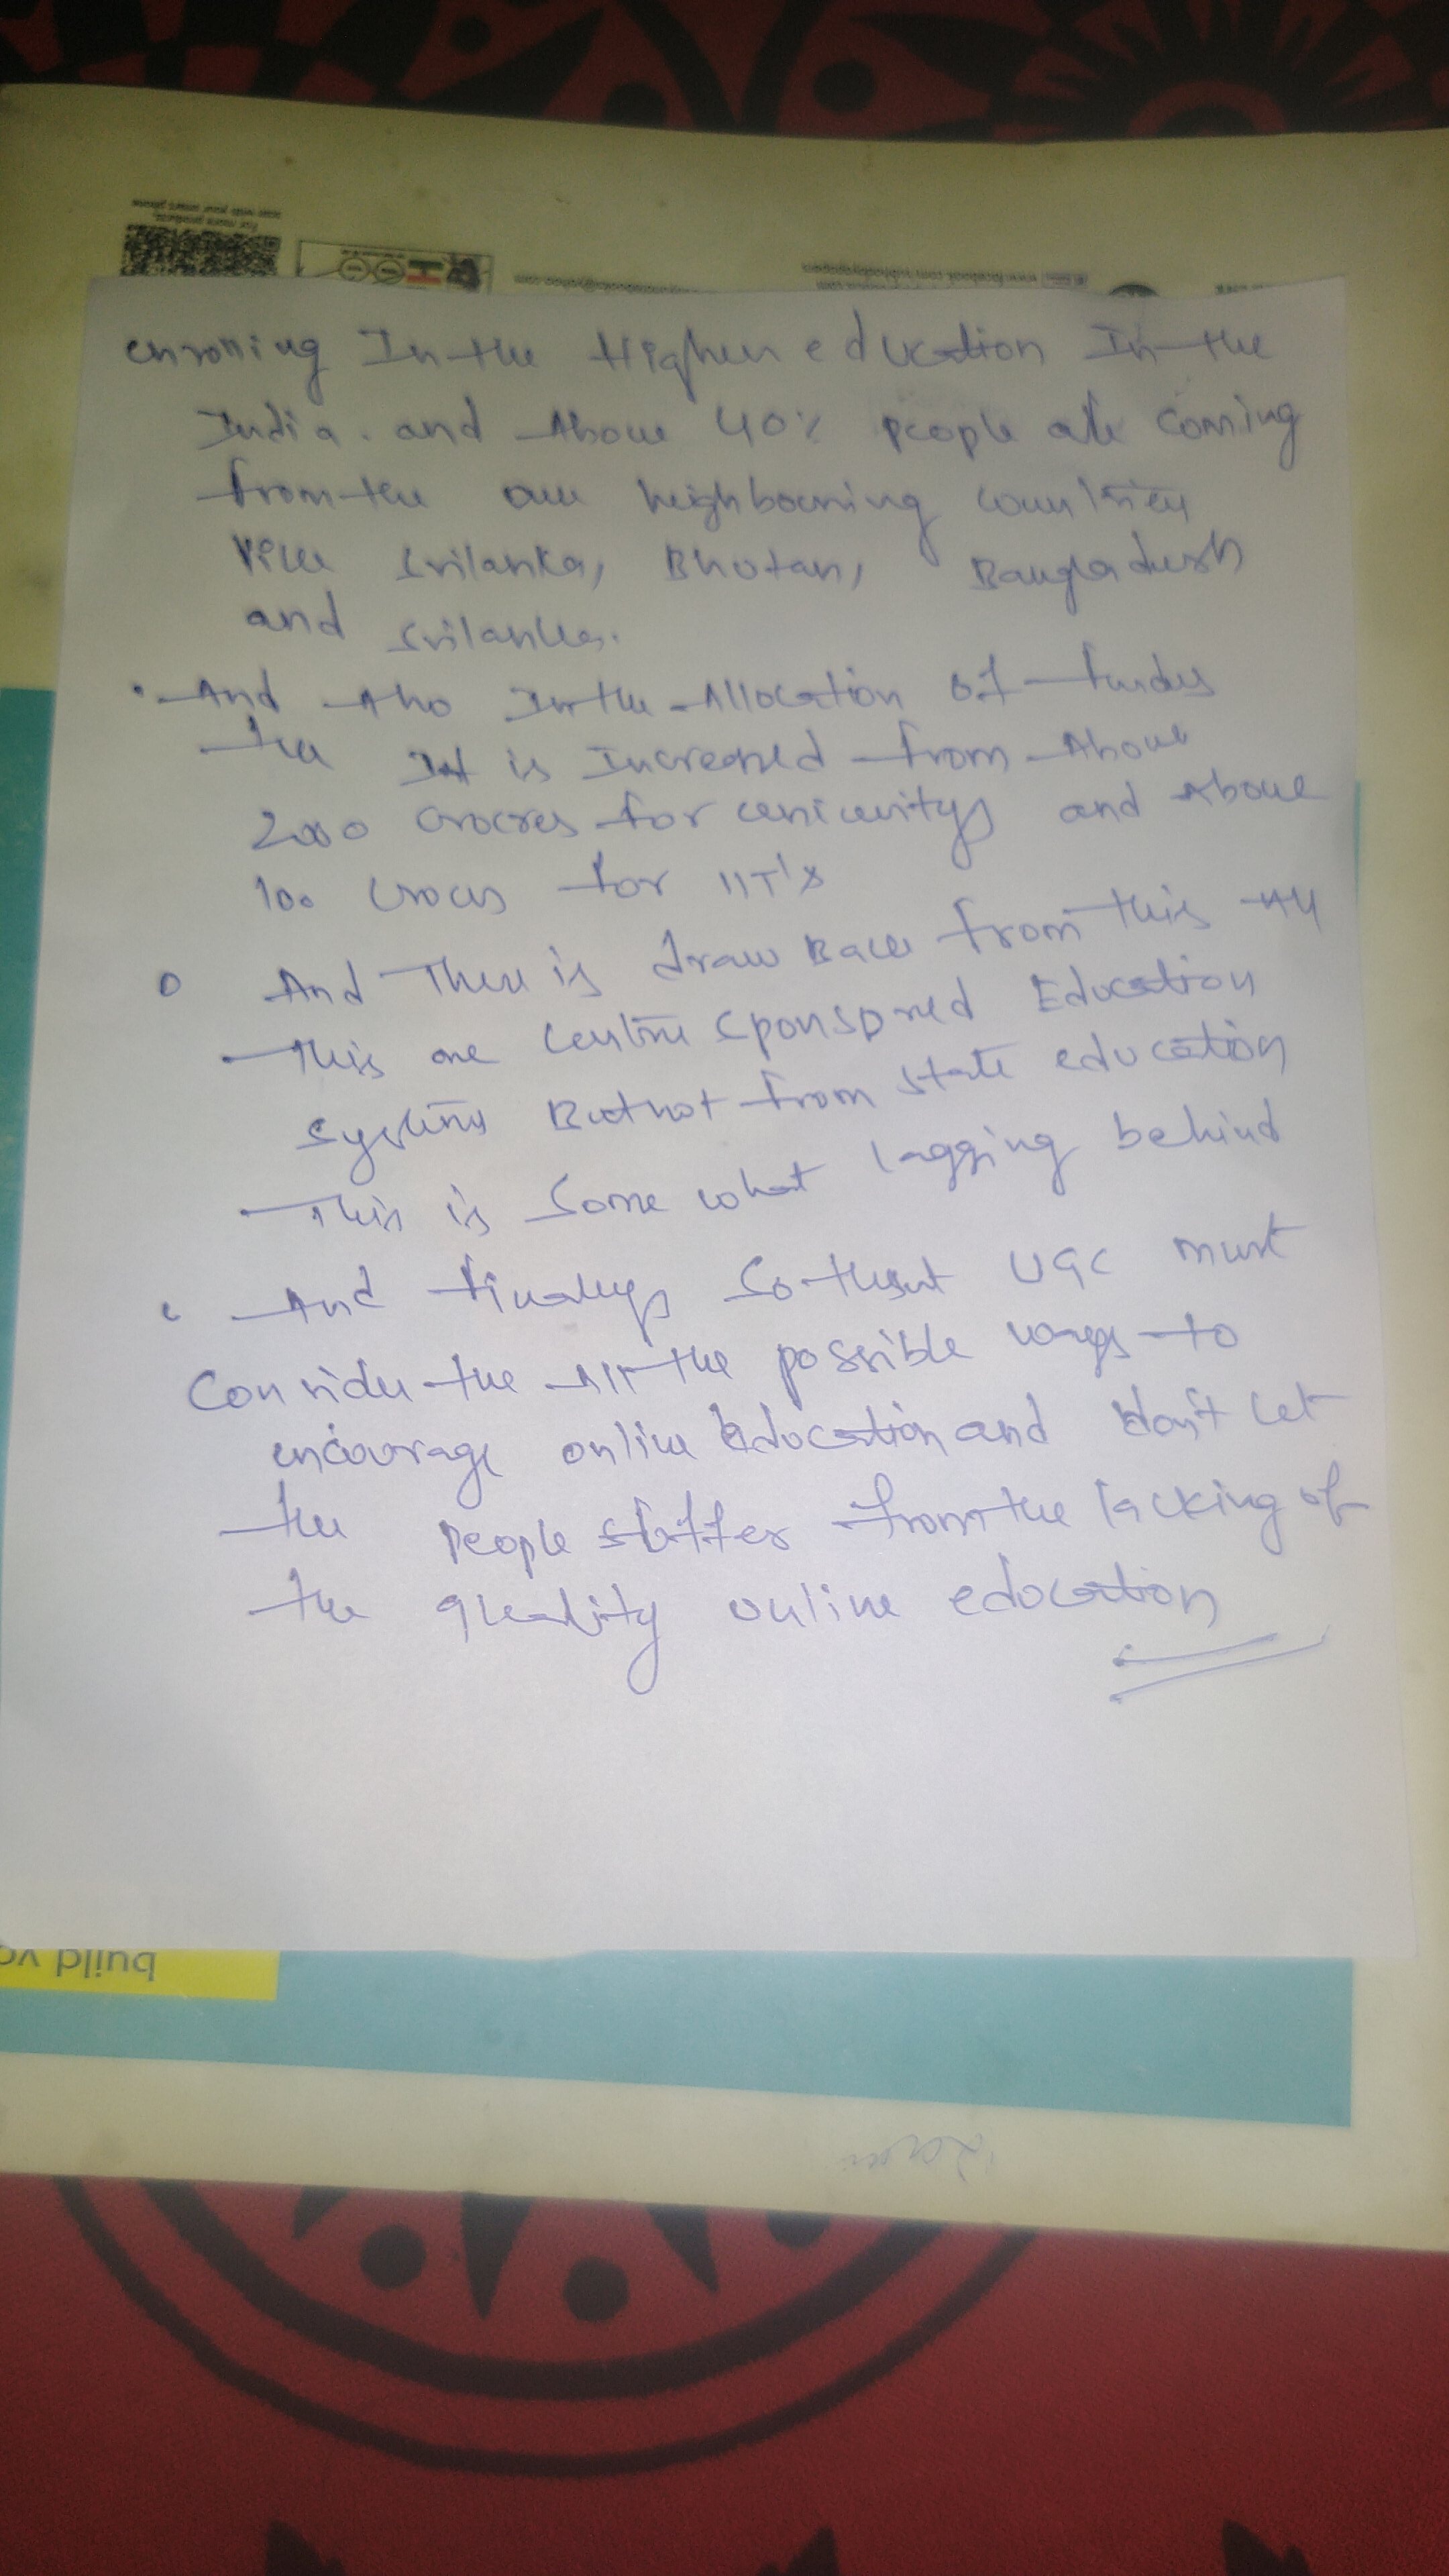 enrolling In the Higher education In the
India. and Above 40% people are coming
from the our neighbouring countries
like Srilanka, Bhutan, Bangladesh
and Srilanka.
• And Also In the Allocation of funds
the It is Increased from Above
2000 crocres for and Above
100 for IIT's
And There is draw Back from this All
This are centre sponspored Education
systems But not from state education
This is some what lagging behind
And finally so that UGC must
Consider the All the possible ways to
encourage online Education and don't let
the people suffer from the lacking of
the quality online education
build